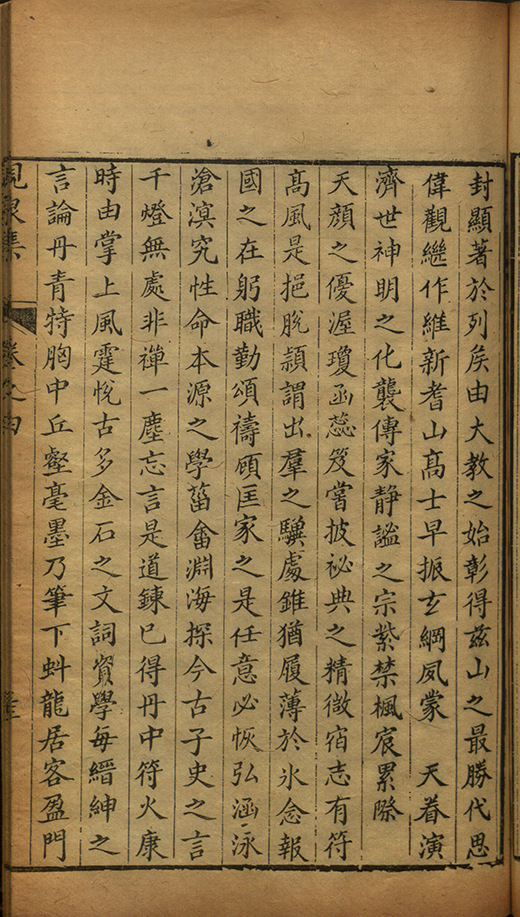 封顯著於列矦由大教之始彰得茲山之最勝代思
偉觀繼作維新耆山髙士早振玄綱夙蒙　天眷演
濟世神明之化襲傳家静謐之宗紫禁楓宸累際
天顔之優渥瓊函蕊笈嘗披祕典之精微宿志有符
髙風是挹脫頴謂出羣之驥處錐猶履薄於氷念報
國之在躬職勤頌禱頋匡家之是任意必恢弘涵泳
滄溟究性命本源之學菑畬淵海探今古子史之言
千燈無處非禪一塵忘言是道鍊已得丹中符火康
時由掌上風霆悅古多金石之文詞資學每縉紳之
言論丹青特胸中丘壑毫墨乃筆下蚪龍居客盈門
峴泉集
卷之四